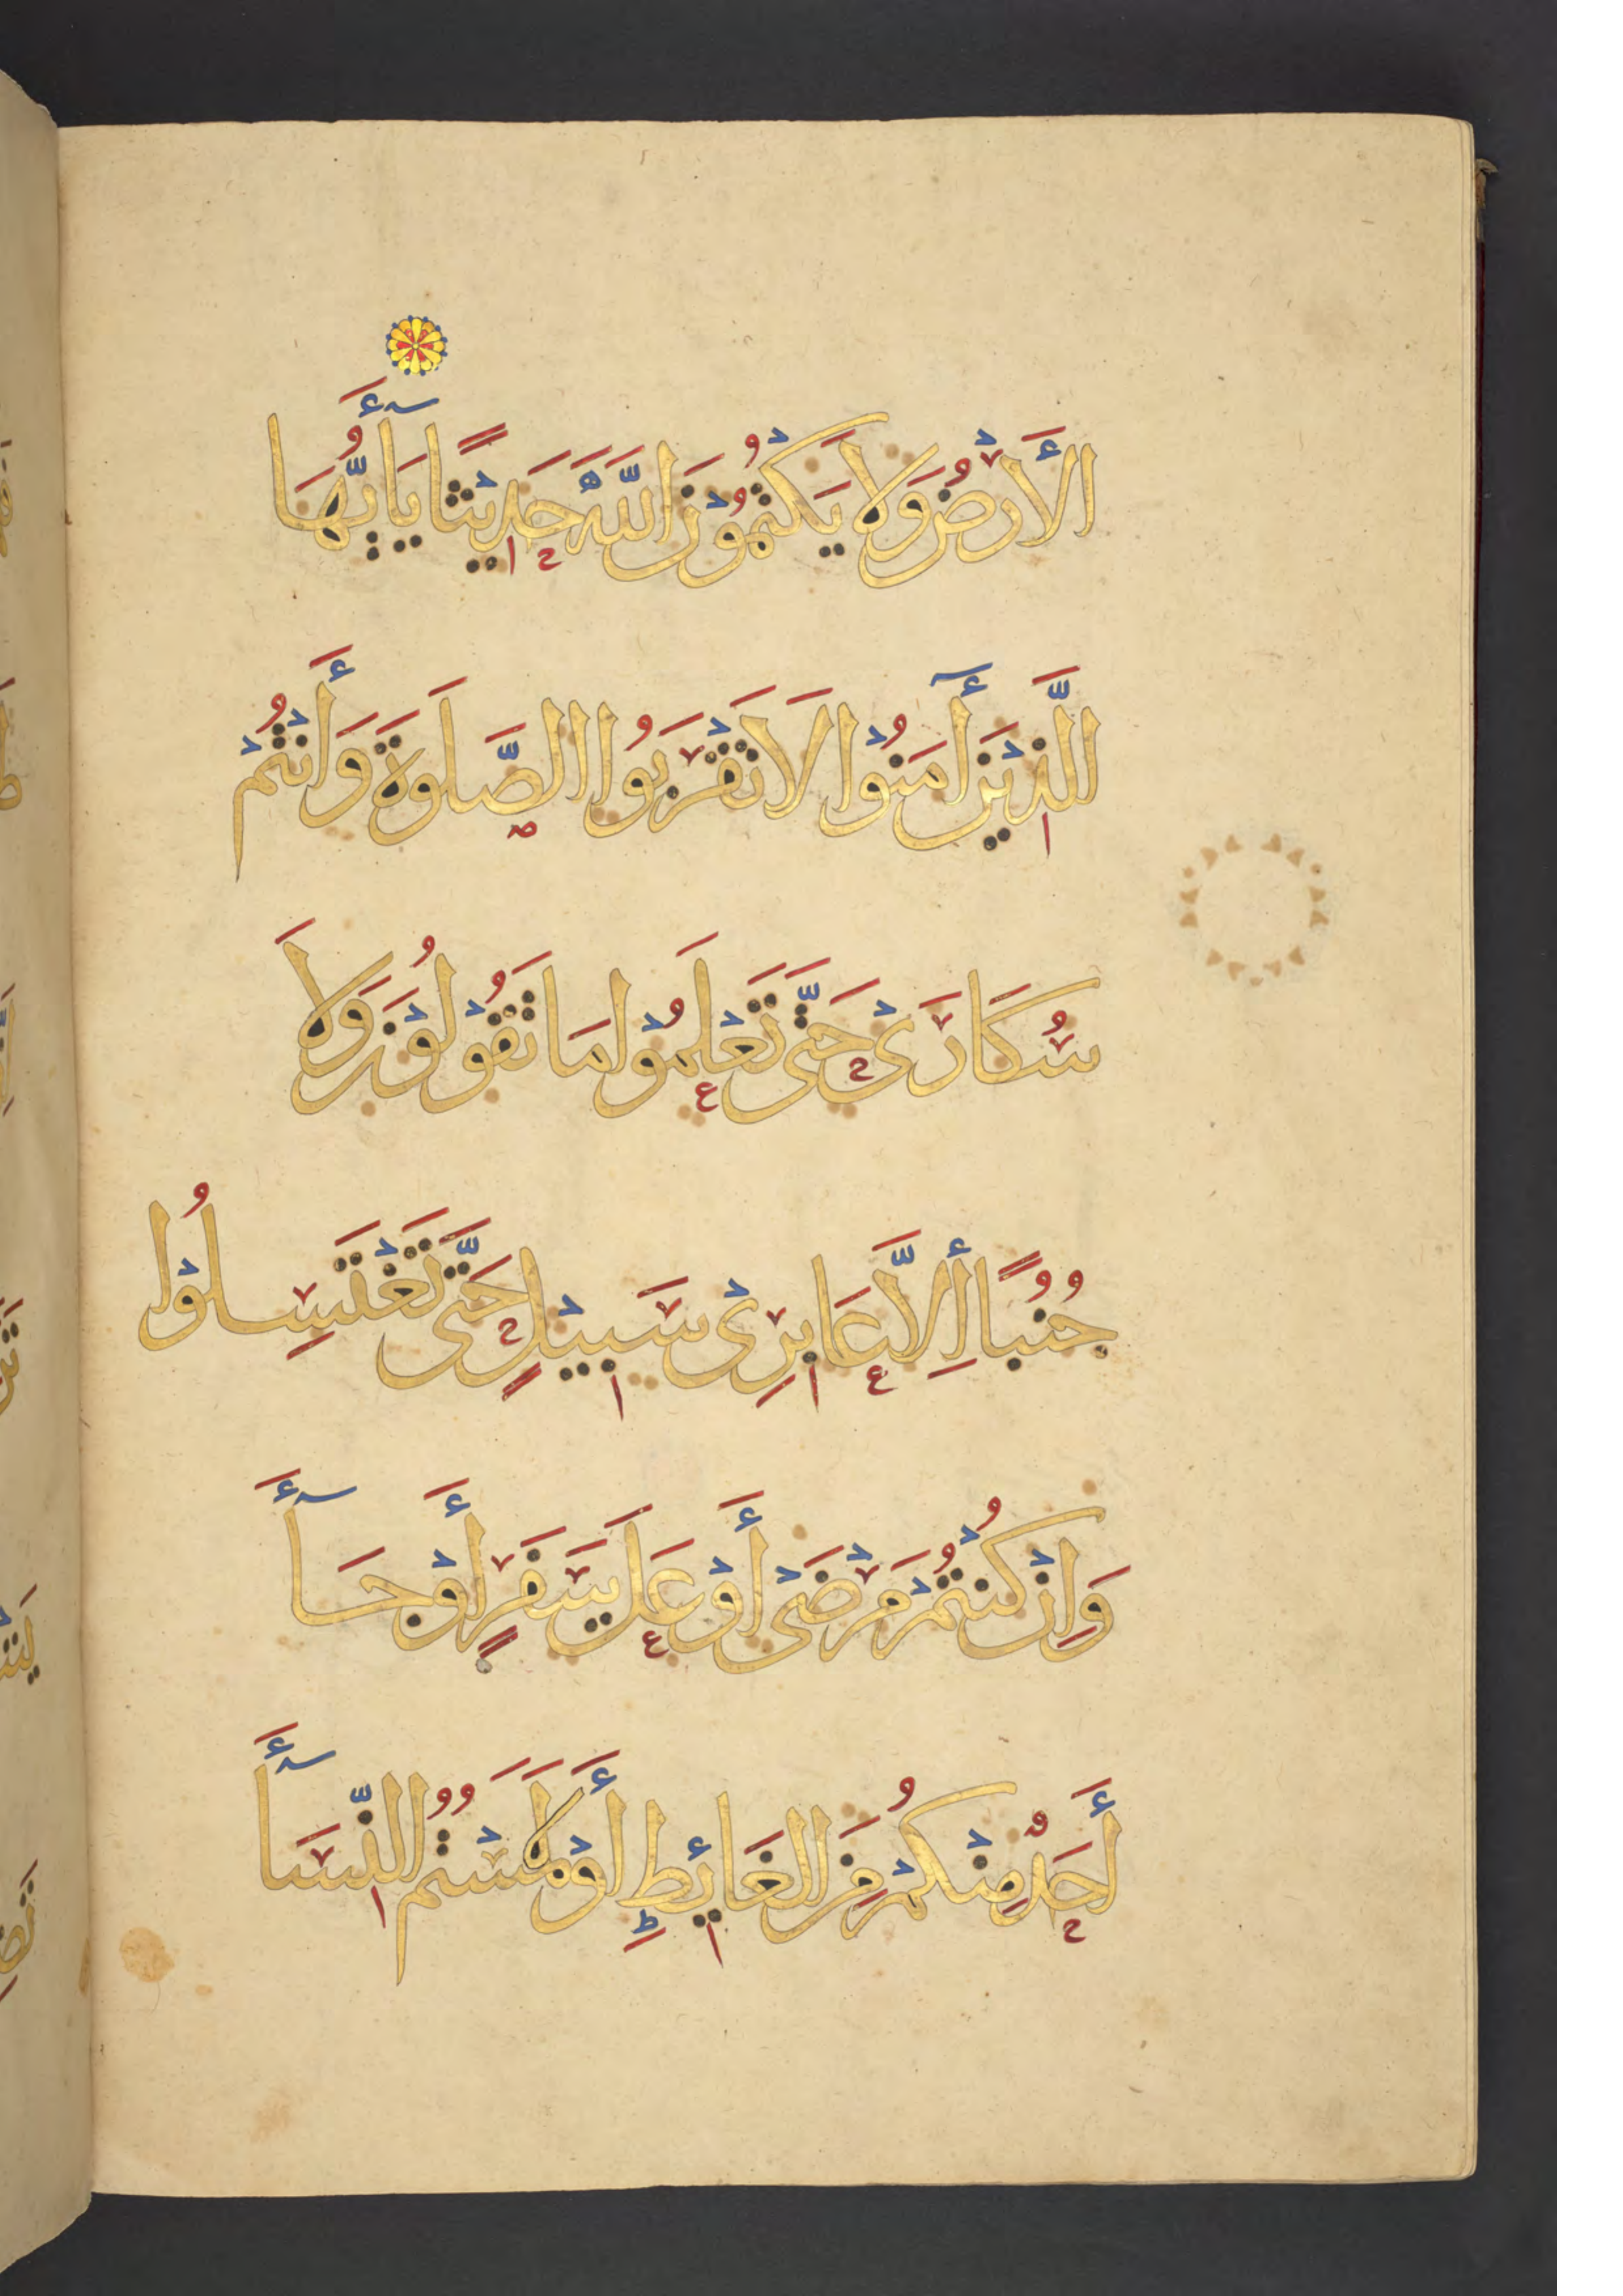 الْأَرْضُ وَلَا يَكْتُمُوْنَ اللَّهَ حَدِيْثًا يَا أَيُّهَا
الَّذِيْنَ أٓمَنُوْا لَا تَقْرَبُوا الصَّلَوةَ وَأَنْتُمْ
سُكَارَىْ حَتَّى تَعْلَمُوْا مَا تَقُوْلُوْنَ وَلَا
جُنُبًا إِلَّا عَابِرِىْ سَبِيْلٍ حَتَّى تَغْتَسِلُوْا
وَإِنْ كُنْتُمْ مَرْضَىْ أَوْ عَلَى سَفَرٍ أَوْ جَآأَ
أَحَدٌ مِنْكُمْ مِنَ الْغَائِطِ أَوْ لَامَسْتُمُ النِّسَآأَ